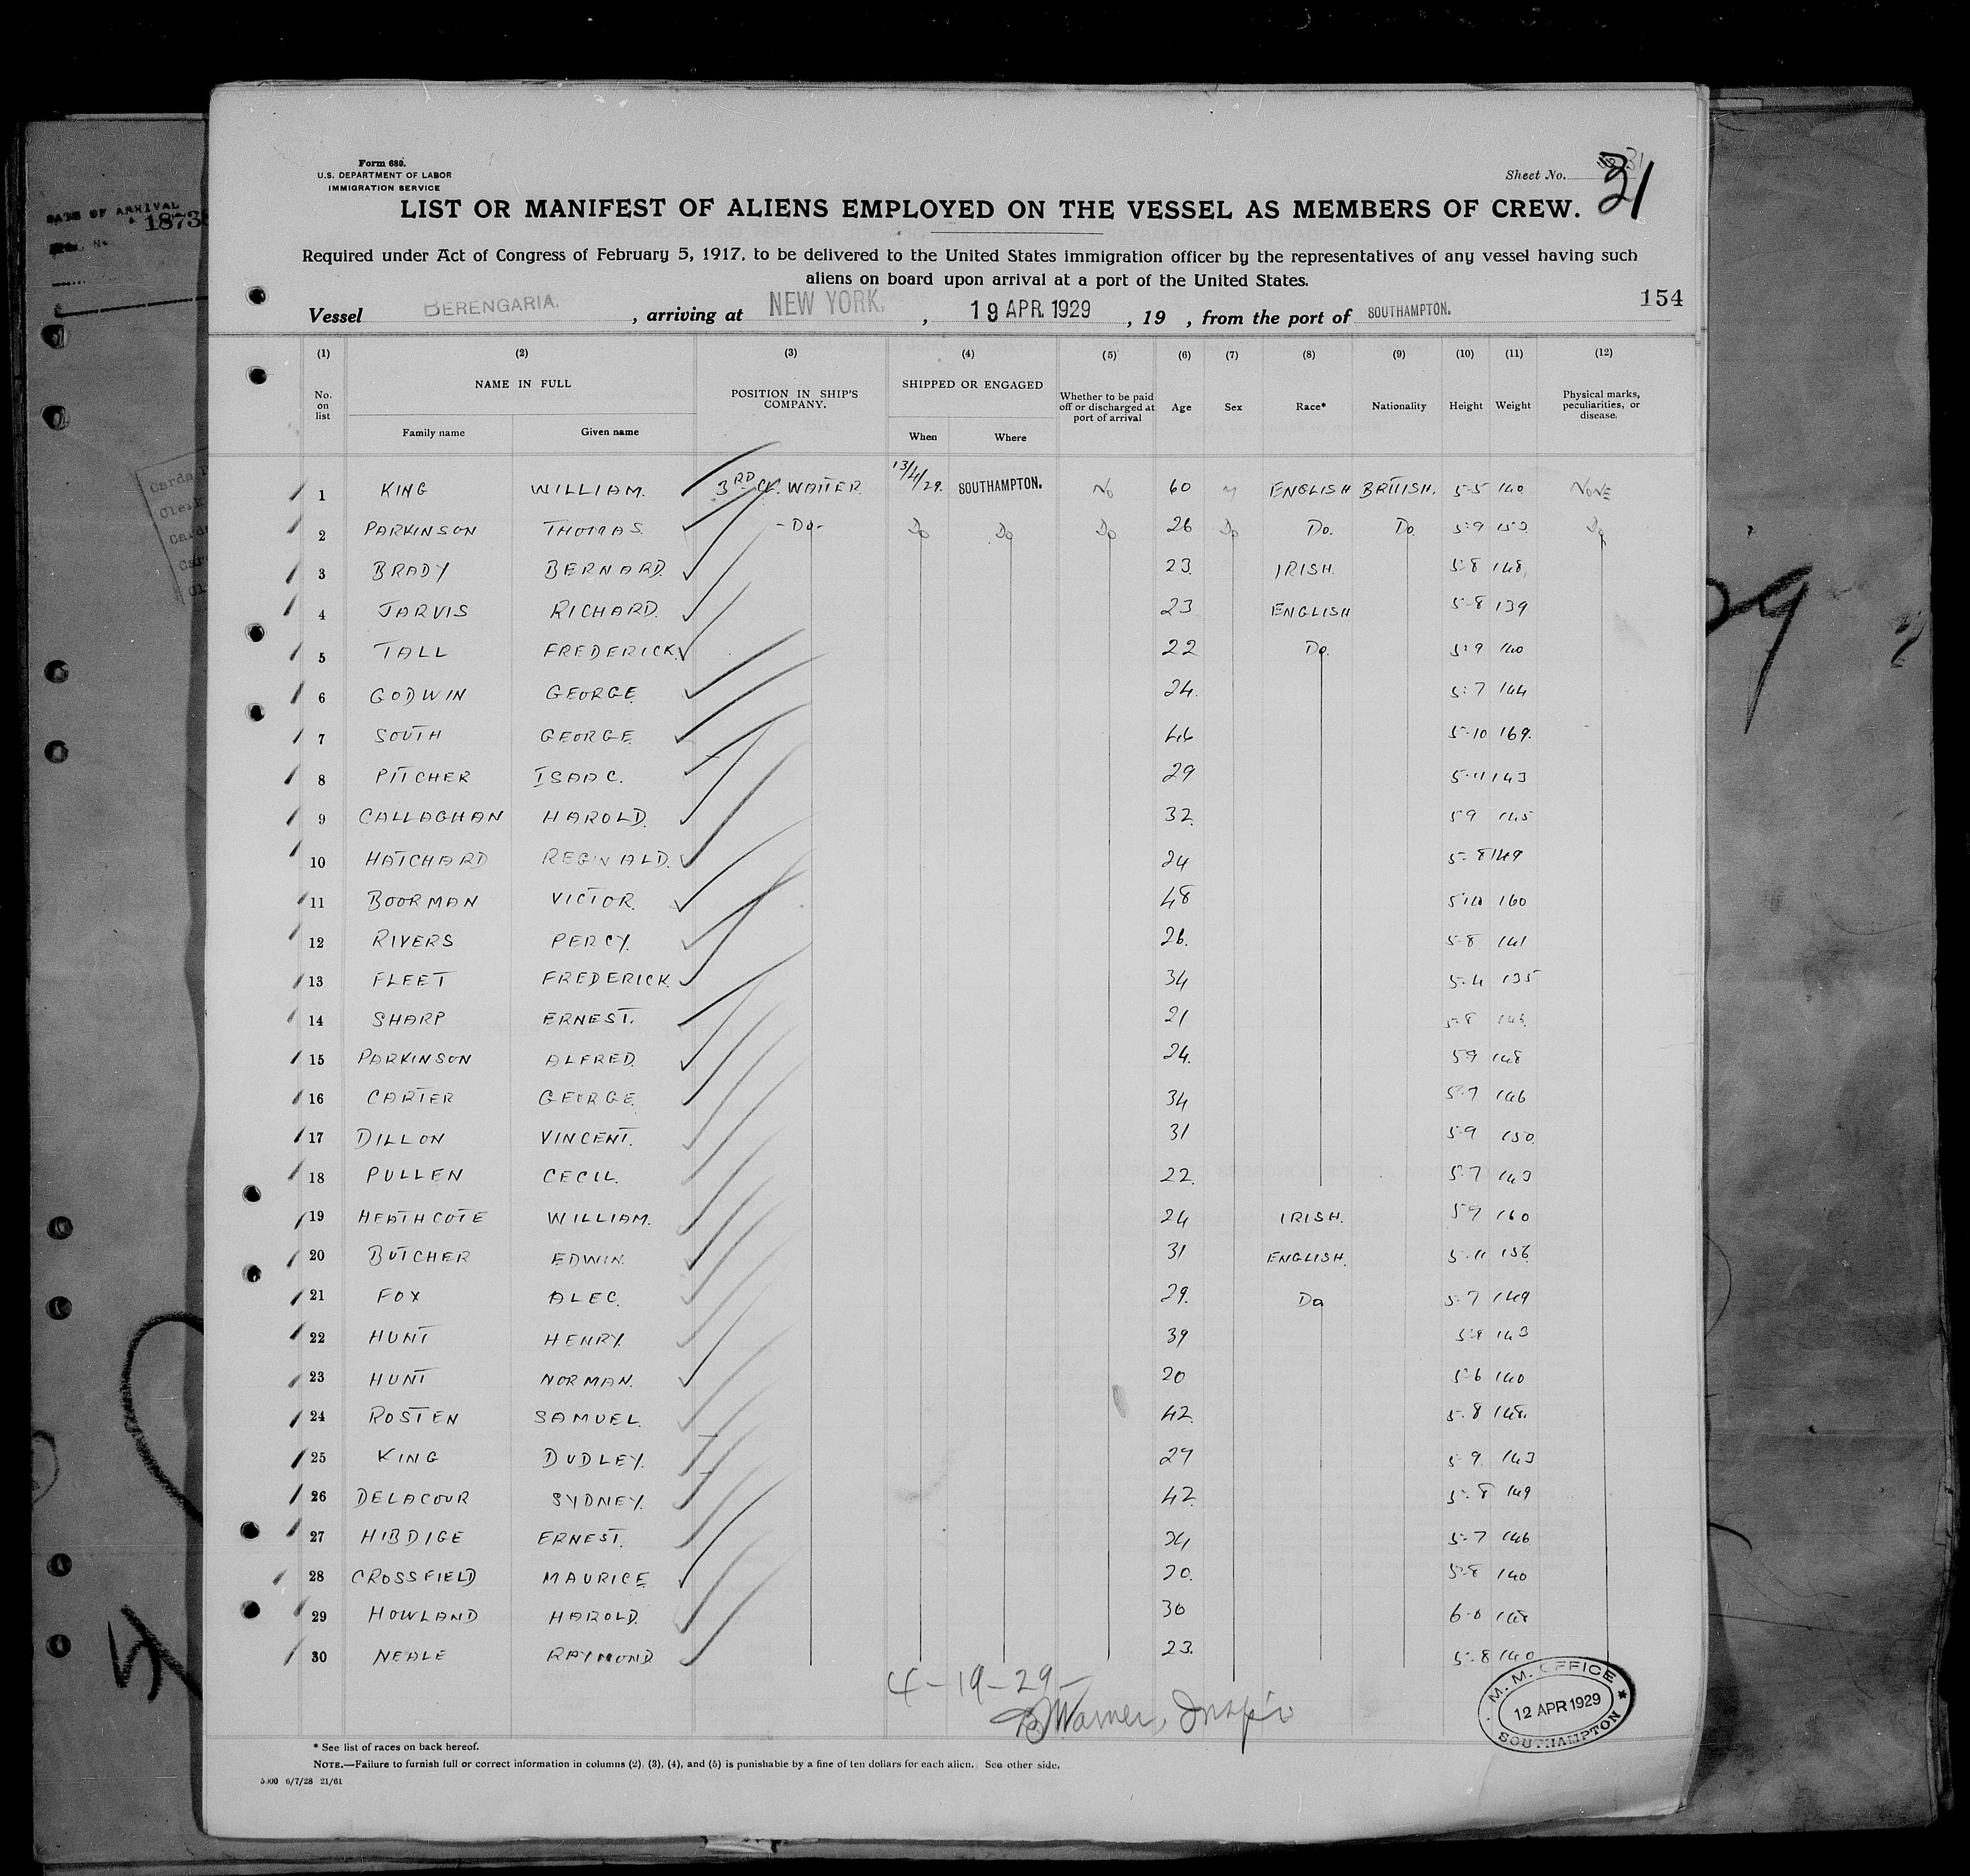 DATE OF ARRIVAL
1873
Form 680.
U.S. DEPARTMENT OF LABOR
IMMIGRATION SERVICE
Sheet No. 31
LIST OR MANIFEST OF ALIENS EMPLOYED ON THE VESSEL AS MEMBERS OF CREW.
Required under Act of Congress of February 5, 1917, to be delivered to the United States immigration officer by the representatives of any vessel having such
aliens on board upon arrival at a port of the United States.
154
Vessel BERENGARIA. , arriving at NEW YORK. , 19 APR. 1929 , 19 , from the port of SOUTHAMPTON.
(1) (2) (3) (4) (5) (6) (7) (8) (9) (10) (11) (12)
No. on list NAME IN FULL Family name Given name POSITION IN SHIP'S COMPANY. SHIPPED OR ENGAGED When Where Whether to be paid off or discharged at port of arrival Age Sex Race* Nationality Height Weight Physical marks, peculiarities, or disease.
1 KING WILLIAM. 3RD Cl. WAITER 13/4/29. SOUTHAMPTON. No 60 M ENGLISH BRITISH. 5-5 140 NONE
2 PARKINSON THOMAS. -Do- Do Do Do 26 Do Do. Do. 5-9 153 Do
3 BRADY BERNARD. 23. IRISH. 5-8 148
4 JARVIS RICHARD. 23 ENGLISH 5-8 139
5 TALL FREDERICK. 22 Do. 5-9 140
6 GODWIN GEORGE. 24. 5-7 144
7 SOUTH GEORGE. 44 5-10 169.
8 PITCHER ISAAC. 29 5-11 143
9 CALLAGHAN HAROLD. 32. 5 9 145
10 HATCHARD REGINALD. 24 5-8 149
11 BOORMAN VICTOR. 48 5-10 160
12 RIVERS PERCY. 26. 5-8 141
13 FLEET FREDERICK. 34 5-4 135
14 SHARP ERNEST. 21 5-8
15 PARKINSON ALFRED. 24. 5 9 148
16 CARTER GEORGE. 34 5-7 146
17 DILLON VINCENT. 31 5-9 150.
18 PULLEN CECIL. 22. 5-7 143
19 HEATHCOTE WILLIAM. 24 IRISH. 5 9 160
20 BUTCHER EDWIN. 31 ENGLISH. 5-11 156
21 FOX ALEC. 29. Do 5-7 149
22 HUNT HENRY. 39 5-8 143
23 HUNT NORMAN. 20 5-6 140
24 ROSTEN SAMUEL. 42. 5-8 148.
25 KING DUDLEY. 29 5-9 143
26 DELACOUR SYDNEY. 42. 5-8 149
27 HIBDIGE ERNEST. 34 5-7 146
28 CROSSFIELD MAURICE 20. 5-8 140
29 HOWLAND HAROLD. 30 6-0 148
30 NEALE RAYMOND. 23. 5-8 140
4-19-29-
Warner, Insp'r
M. M. OFFICE
12 APR 1929
SOUTHAMPTON
* See list of races on back hereof.
NOTE.—Failure to furnish full or correct information in columns (2), (3), (4), and (5) is punishable by a fine of ten dollars for each alien. See other side.
5000 6/7/28 21/61